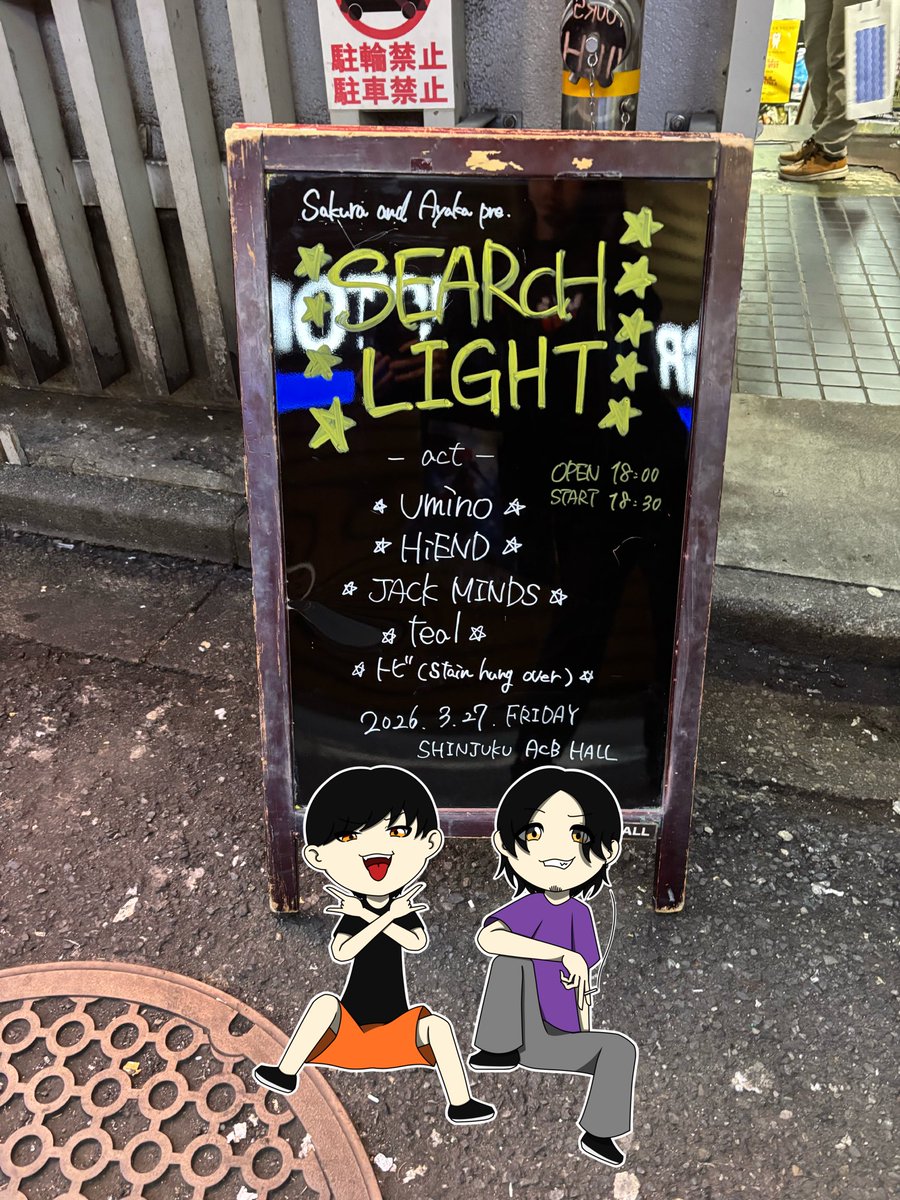 駐輪禁止
駐車禁止
Sakura and Ayaka pre.
SEARCH
LIGHT
- act -
OPEN 18:00
START 18:30
☆ Umino ☆
☆ HiEND ☆
☆ JACK MINDS ☆
☆ teal ☆
☆ トビ (Stain hung over) ☆
2026. 3. 27. FRIDAY
SHINJUKU ACB HALL
ALL